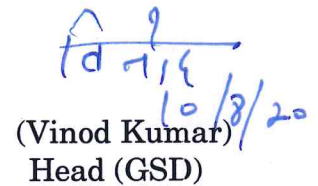 विनोद
10/8/20
(Vinod Kumar)
Head (GSD)